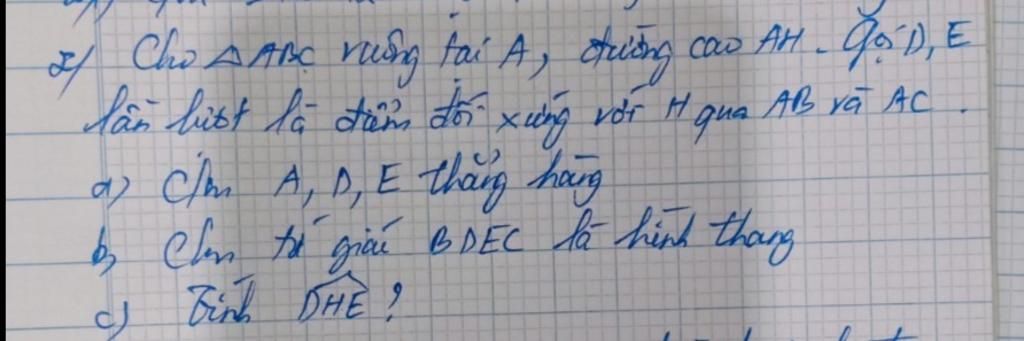 2/ Cho △ABC vuông tại A, đường cao AH. Gọi D, E
lần lượt là điểm đối xứng với H qua AB và AC.
a) C/m A, D, E thẳng hàng
b, C/m tứ giác BDEC là hình thang
c) Tính DHE?